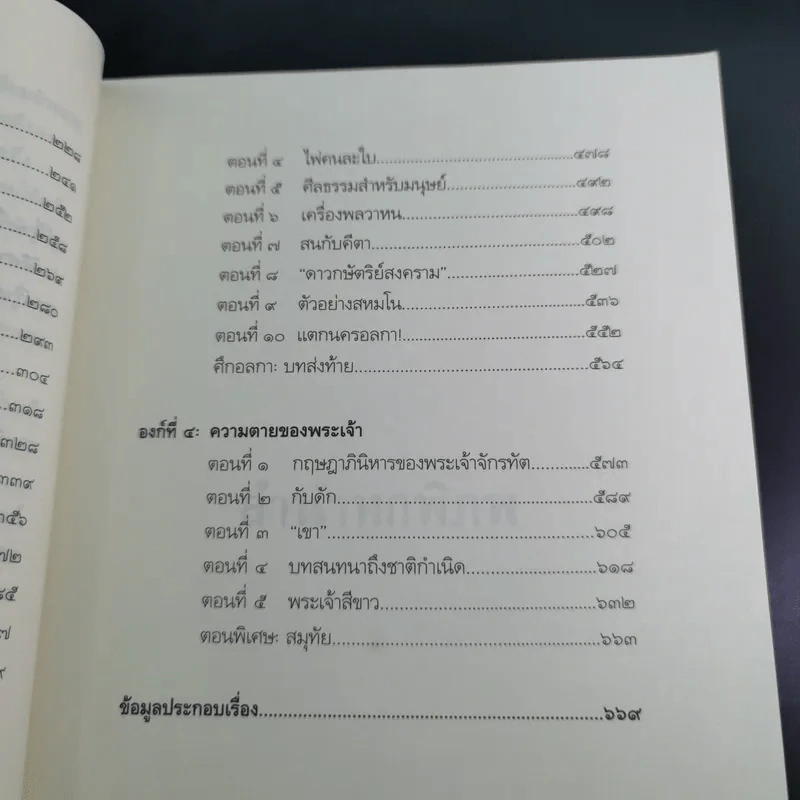 ๒๒๘
๒๔๑
๒๕๒
๒๕๘
๒๖๙
๒๘๐
๒๙๓
๓๐๔
๓๑๘
๓๒๘
๓๓๙
ตอนที่ ๔ ไพ่คนละใบ..........๔๗๘
ตอนที่ ๕ ศีลธรรมสำหรับมนุษย์..........๔๙๒
ตอนที่ ๖ เครื่องพลวาหน..........๔๙๘
ตอนที่ ๗ สนกับคีตา..........๕๐๒
ตอนที่ ๘ “ดาวกษัตริย์สงคราม”..........๕๒๗
ตอนที่ ๙ ตัวอย่างสหมโน..........๕๓๖
ตอนที่ ๑๐ แตกนครอลกา!..........๕๕๒
ศึกอลกา: บทส่งท้าย..........๕๖๔
องก์ที่ ๔: ความตายของพระเจ้า
ตอนที่ ๑ กฤษฎาภินิหารของพระเจ้าจักรทัต..........๕๗๓
ตอนที่ ๒ กับดัก..........๕๘๙
ตอนที่ ๓ “เขา”..........๖๐๕
ตอนที่ ๔ บทสนทนาถึงชาติกำเนิด..........๖๑๘
ตอนที่ ๕ พระเจ้าสีขาว..........๖๓๒
ตอนพิเศษ: สมุทัย..........๖๖๓
ข้อมูลประกอบเรื่อง..........๖๖๙